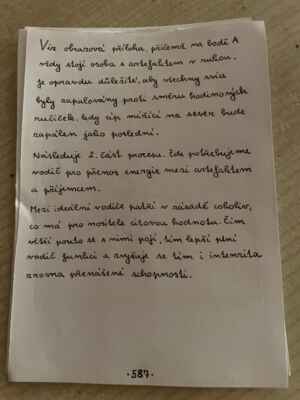 Viz obrazová příloha, přičemž na bodě A
vždy stojí osoba s artefaktem v rukou.
Je opravdu důležité, aby všechny svíce
byly zapalovány proti směru hodinových
ručiček, kdy cíp mířící na sever bude
zapálen jako poslední.
Následuje 2. část procesu. Zde potřebujeme
vodič pro přenos energie mezi artefaktem
a příjemcem.
Mezi ideální vodiče patří v zásadě cokoliv,
co má pro nositele citovou hodnotu. Čím
větší pouto se s nimi pojí, tím lepší plní
vodič funkci a zvyšuje se tím i intenzita
zrovna přenášené schopnosti.
·587·